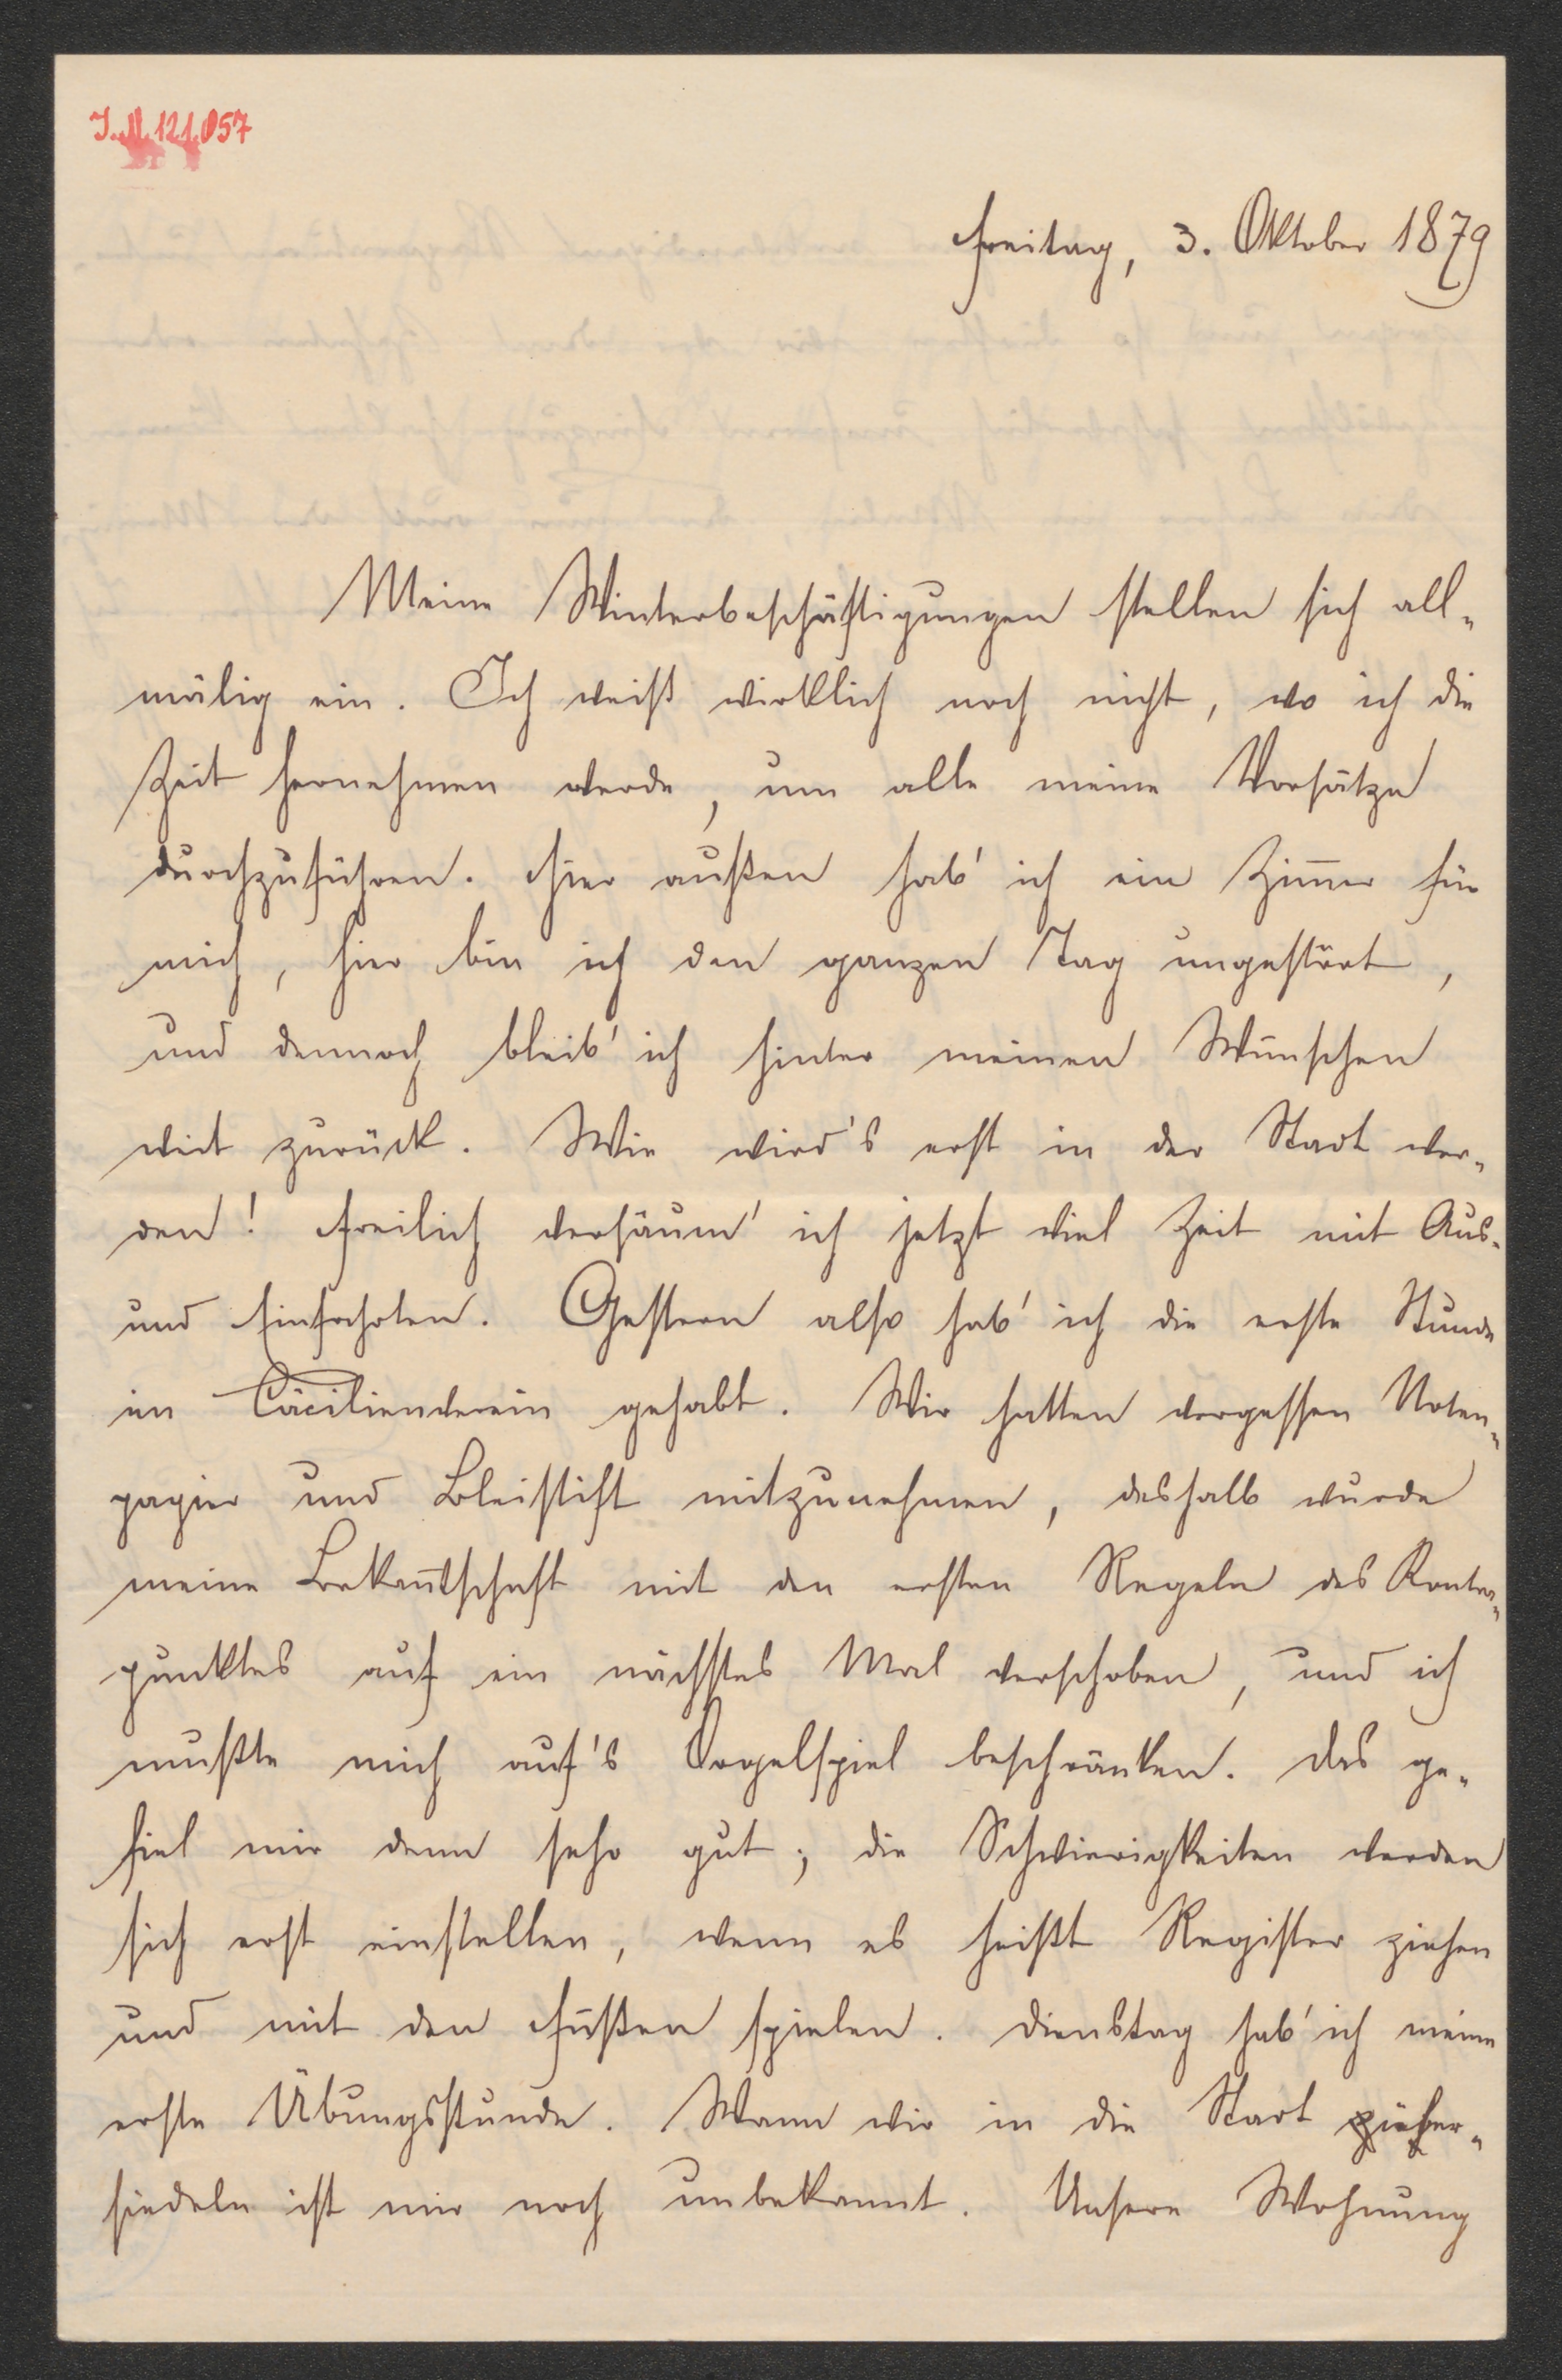 I.N. 121.057
Freitag, 3. Oktober 1879
Meine Winterbeschäftigungen stellen sich all-
mälig ein. Ich weiß wirklich noch nicht, wo ich die
Zeit hernehmen werde, um alle meine Vorsätze
durchzuführen. Hier außen hab' ich ein Zim̅er für
mich, hier bin ich den ganzen Tag ungestört,
und dennoch bleib' ich hinter meinen Wünschen
weit zurück. Wie wird's erst in der Stadt wer-
den! Freilich versäum' ich jetzt viel Zeit mit Aus-
und Einfahrten. Gestern also hab' ich die erste Stunde
im Cäcilienverein gehabt. Wir hatten vergessen Noten-
papier und Bleistift mitzunehmen, deshalb wurde
meine Bekan̅tschaft mit den ersten Regeln des Kontra-
punktes auf ein nächstes Mal verschoben, und ich
mußte mich auf's Orgelspiel beschränken. Das ge-
fiel mir denn sehr gut; die Schwierigkeiten werden
sich erst einstellen, wenn es heißt Register ziehen
und mit den Füßen spielen. Dienstag hab' ich meine
erste Übungsstunde. Wann wir in die Stadt
siedeln ist mir noch unbekannt. Unsere Wohnung